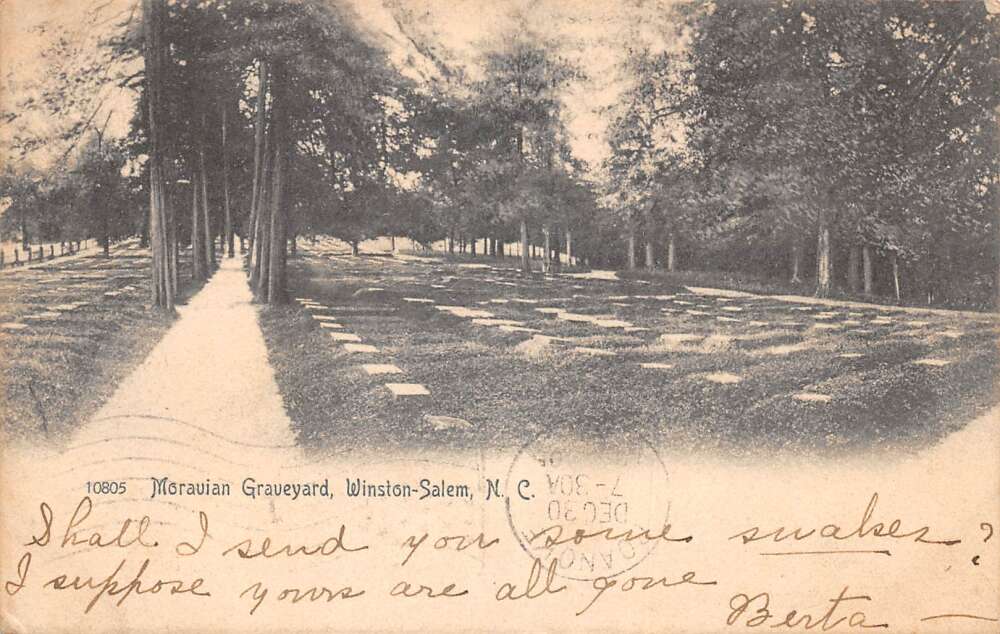 10805 Moravian Graveyard, Winston-Salem, N. C.
DEC 30
7-30A
Shall I send you some snakes?
I suppose yours are all gone
Berta —